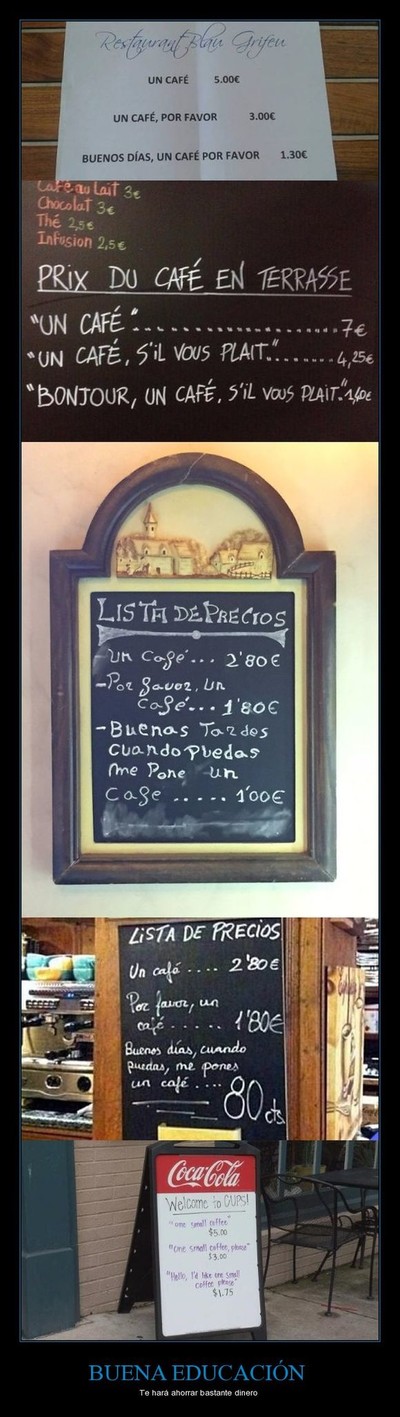 Restaurant Blau Grifeu
UN CAFÉ 5.00€
UN CAFÉ, POR FAVOR 3.00€
BUENOS DÍAS, UN CAFÉ POR FAVOR 1.30€
Café au Lait 3€
Chocolat 3€
Thé 2,5€
Infusion 2,5€
PRIX DU CAFÉ EN TERRASSE
"UN CAFÉ" 7€
"UN CAFÉ, S'IL VOUS PLAIT." 4,25€
"BONJOUR, UN CAFÉ, S'IL VOUS PLAIT." 1,40€
LISTA DE PRECIOS
-Un Café... 2'80€
-Por favor, un
café... 1'80€
-Buenas Tardes
cuando Puedas
me Pone un
Cafe ..... 1'00€
LISTA DE PRECIOS
Un café .... 2'80€
Por favor, un
café...... 1'80€
Buenos días, cuando
puedas, me pones
un café .... 80 cts.
Coca-Cola
Welcome to CUPS!
"one small coffee"
$5.00
"one small coffee, please"
$3.00
"Hello, I'd like one small
coffee please"
$1.75
BUENA EDUCACIÓN
Te hará ahorrar bastante dinero